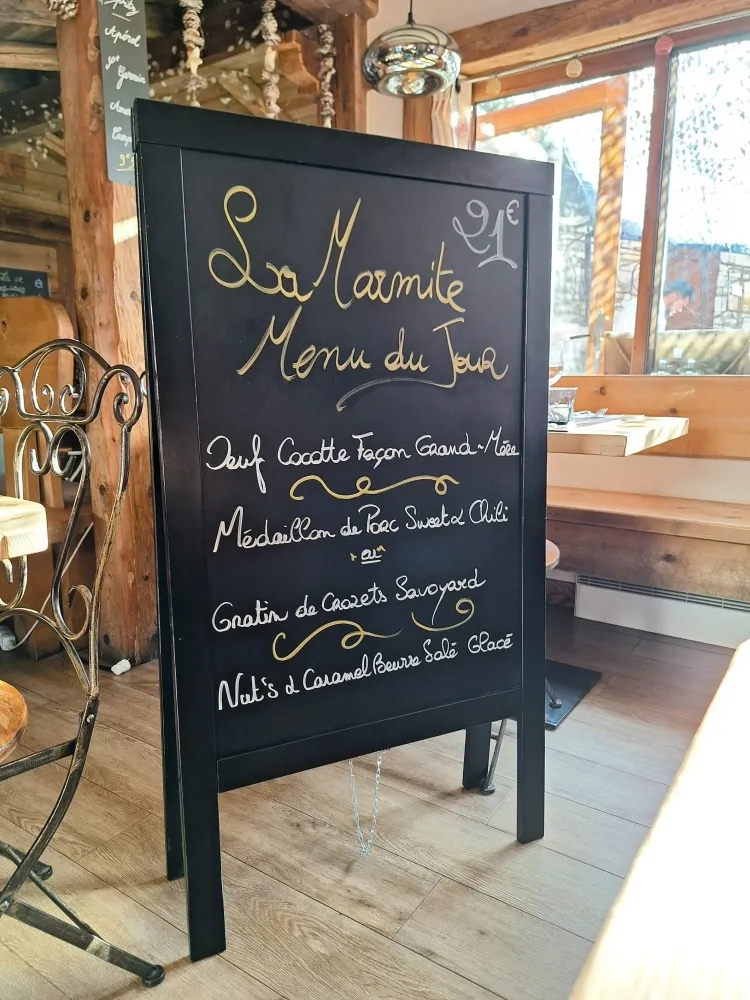 Apérol
St Germain
La Marmite
21€
Menu du Jour
Oeuf Cocotte Façon Grand-Mère
Médaillon de Porc Sweet & Chili
ou
Gratin de Crozets Savoyard
Nut's & Caramel Beurre Salé Glacé